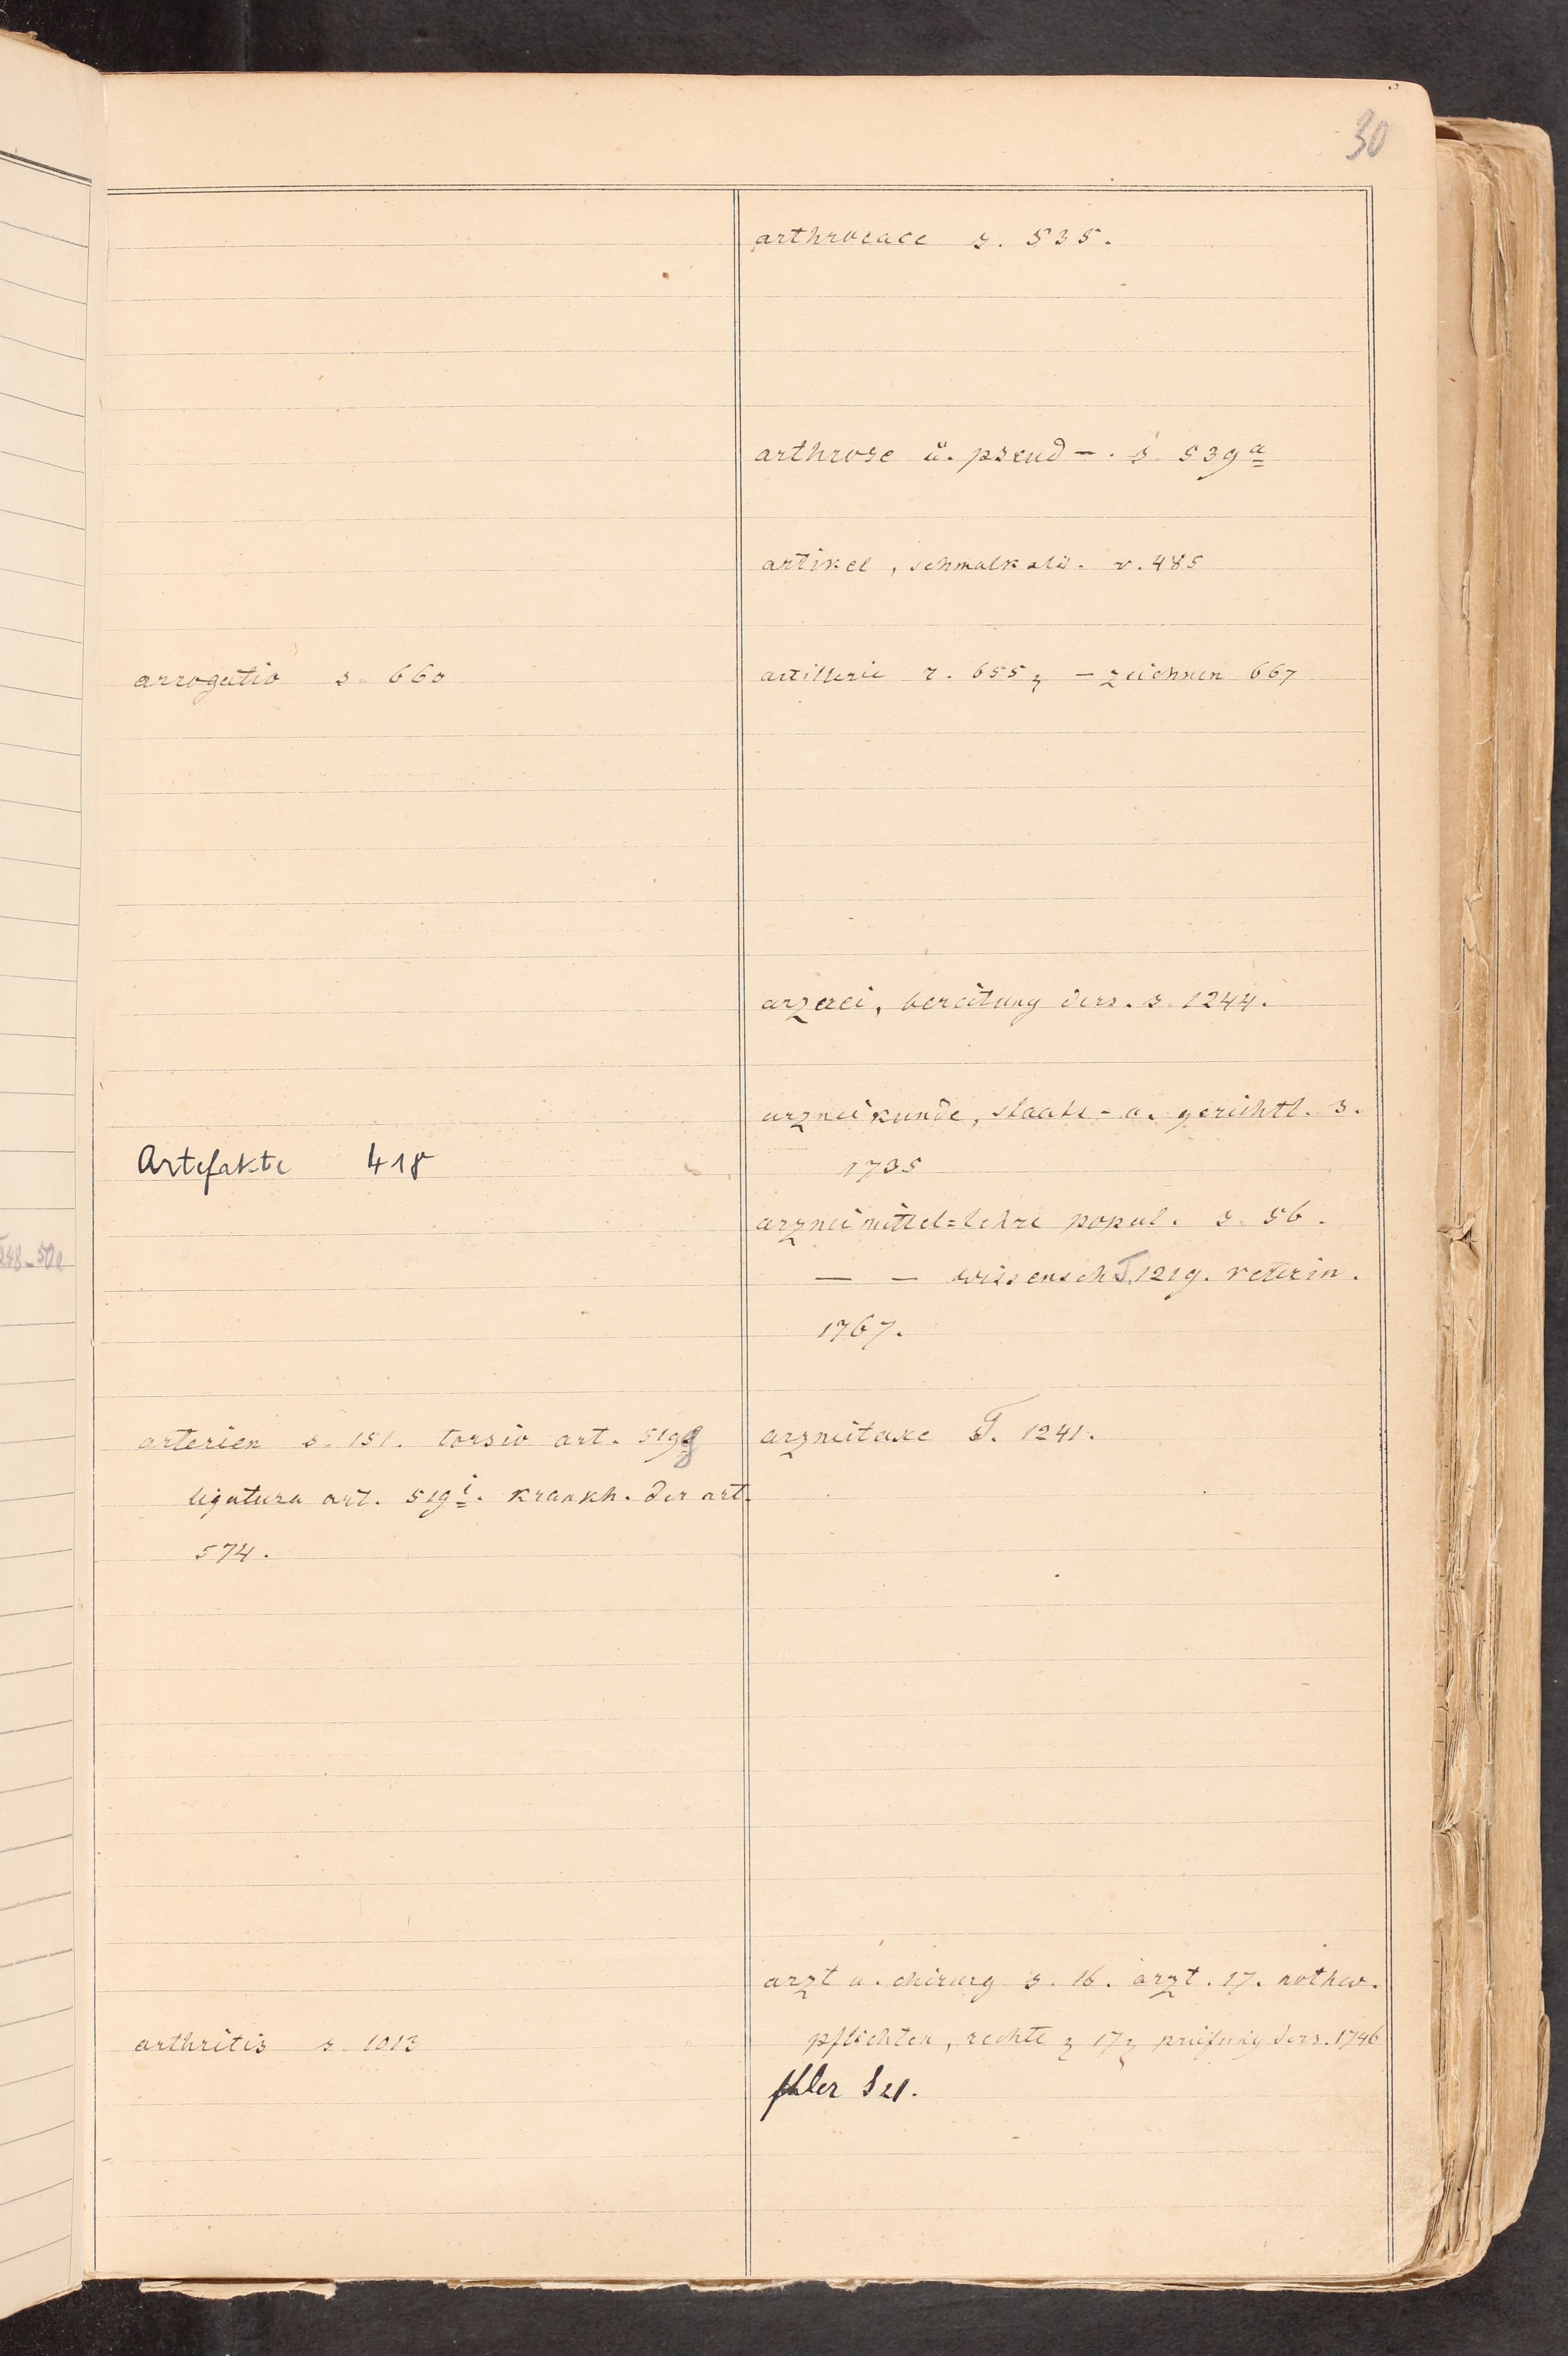 30
arrogatio s. 660
Artefakte 418
arterien s. 151. torsio art. 519g
ligatura art. 519i. krankh. der art.
574.
arthritis s. 1013
arthrocace s. 535.
arthrose u. pseud–. s. 539a
artikel, schmalkald. r. 485
artillerie r. 655, – zeichnen 667
arzenei, bereitung ders. s. 1244.
arzneikunde, staats- u. gerichtl. s.
1735
arzneimittel=lehre popul. s. 56.
— — wissensch. T. 1219. veterin.
1767.
arzneitaxe T. 1241.
arzt u. chirurg s. 16. arzt. 17. nothw.
pflichten, rechte 17, prüfung ders. 1746